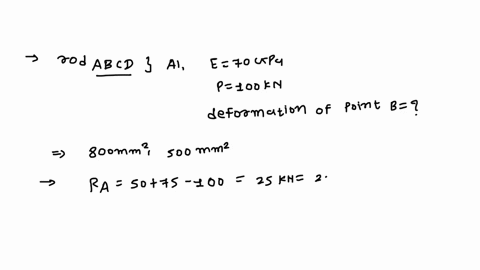 → rod ABCD } Al, E = 70 GPa
P = 100 KN
deformation of Point B = ?
⇒ 800mm², 500 mm²
→ R_A = 50 + 75 - 100 = 25 KN = 2.